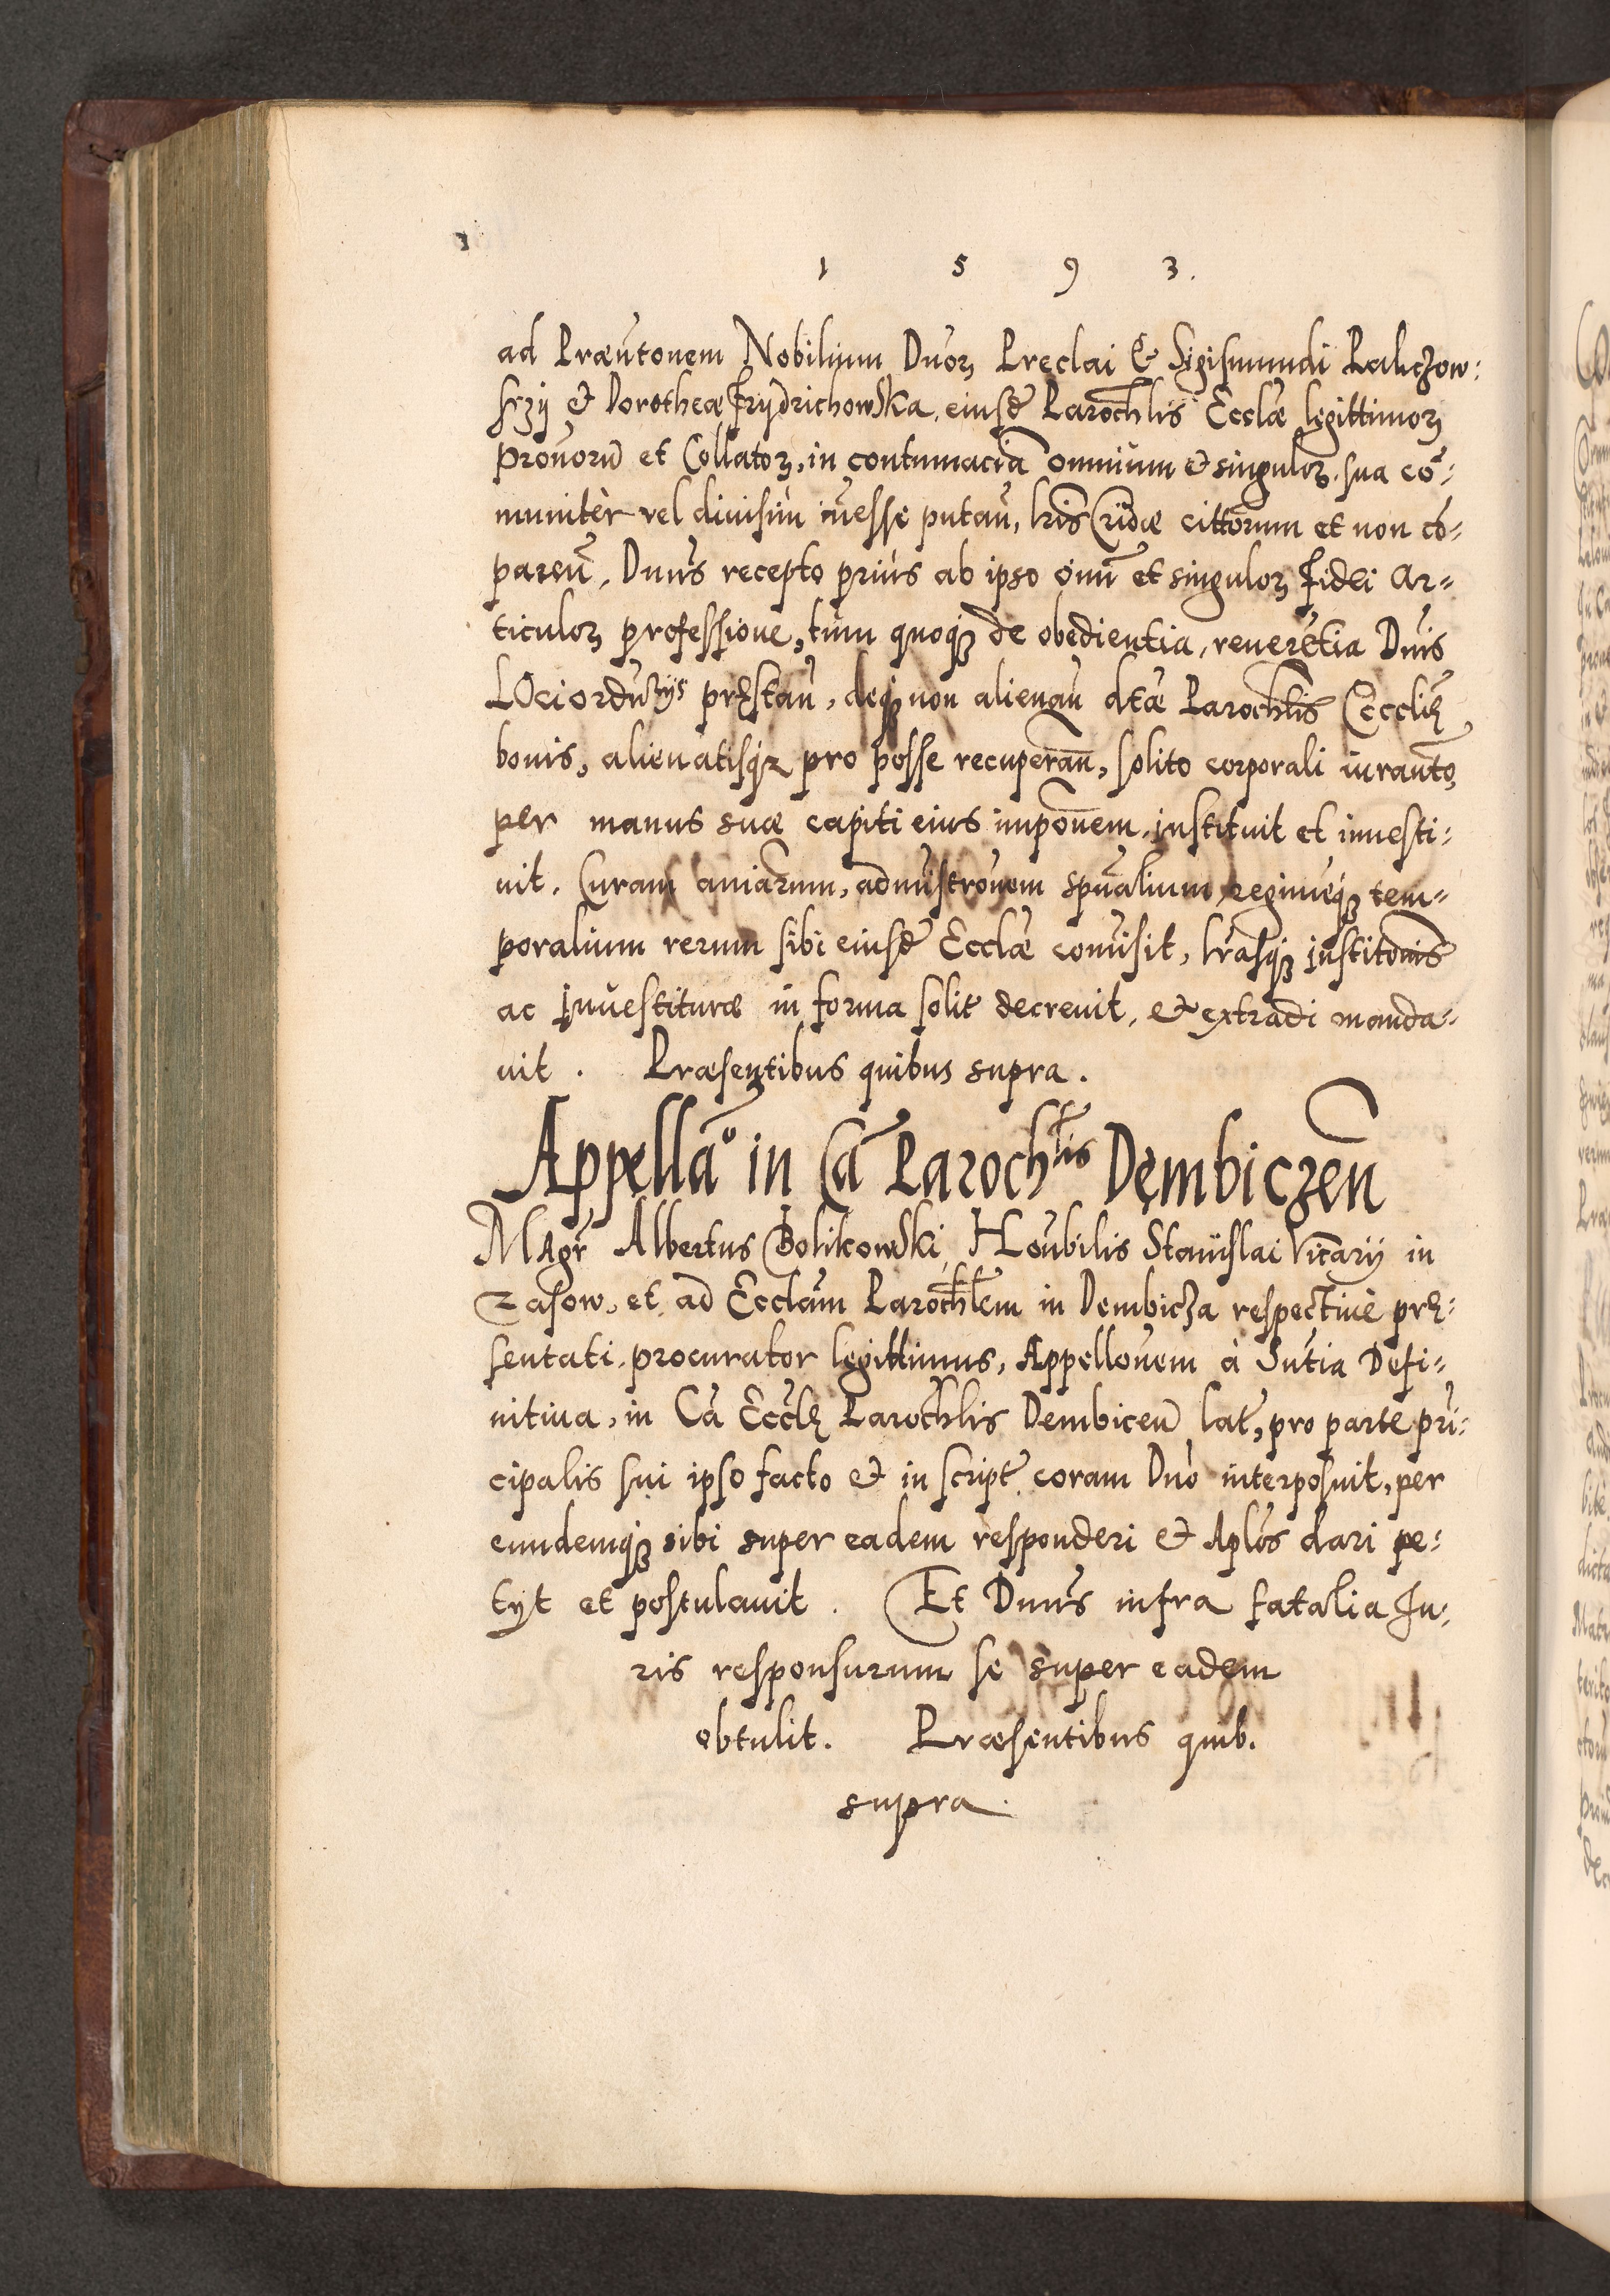 1 5 9 3.
ad Præñtonem Nobilium Dñorꝫ Preclai & Sigismundi Paliczow:
sczÿ & Dorotheæ Frÿdrichowska, eiusđ Parochlis Ecclæ legittimorꝫ
Pronorũ et Collatorꝫ, in contumaciã omnium & singulorꝫ, sua cõ:
muniter vel divisim inẽsse putañ, lris Cridæ cittorum et non cõ-
pareñ, Dnus recepto prius ab ipso õniũ et singulorꝫ Fidei Ar-
ticulorꝫ professione, tum quoqꝫ de obedientia, reverẽtia Dnis
LOciordinrÿs pręstañ, deqꝫ non alienañ dtæ Parochlis Ecclię
bonis, alienatisqꝫ pro posse recuperañ, solito corporali iuranto,
per manus suæ capiti eius imponem, instituit et investi:
vit. Curam aniarum, admistronem spualium, regimẽqꝫ tem-
poralium rerum sibi eiusđ Ecclæ comisit, lrasqꝫ institonis
ac investituræ in forma solit decrevit, & extradi manda-
vit. Præsentibus quibus supra.
Appellão in Cã Parochlis Dembiczeñ
MAgr Albertus Bolikowski, Honbilis Stanislai Vicarÿ in
Zasow, et ad Ecclam Parochlem in Dembicza respectivè prę-
sentati, procurator legittimus, Appellonem à Sntia Defi-
nitiva, in Cã Ecclę Parochlis Dembiceñ lat, pro parte prĩ-
cipalis sui ipso facto & in script coram Dno interposuit, per
eundemqꝫ sibi super eadem responderi & Aplos dari pe-
tÿt et postulavit. Et Dnus infra fatalia Ju-
ris responsurum se super eadem
obtulit. Præsentibus quib.
supra.